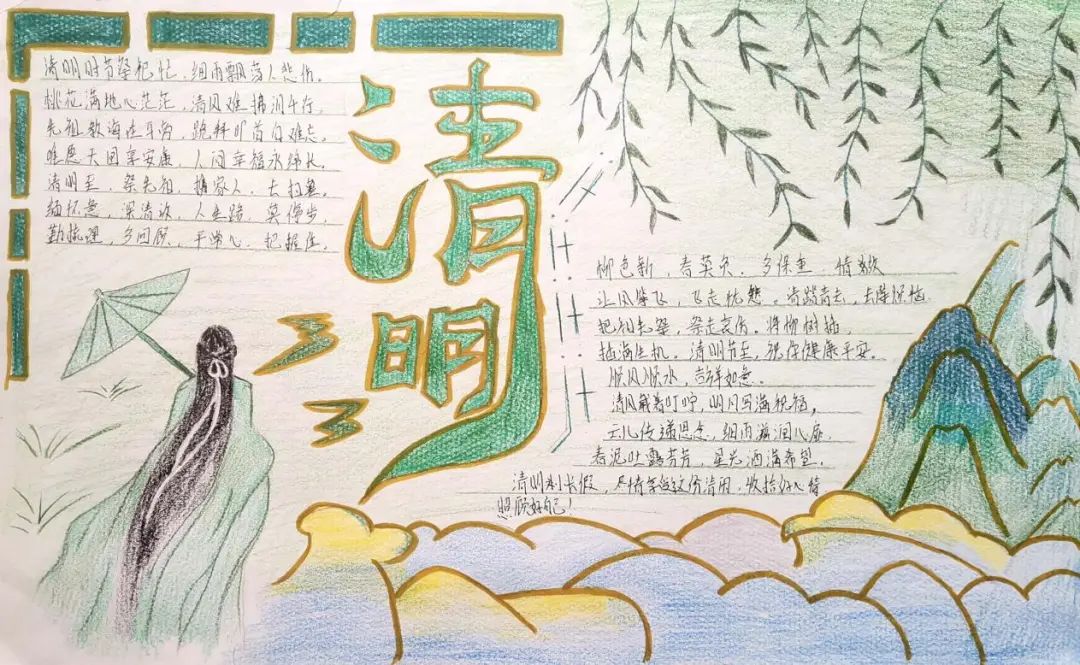 清明
清明时节祭祀忙，细雨飘落人悲伤。
桃花满地心茫茫，清风难拂泪千行。
先祖教诲在耳旁，跪拜叩首自难忘。
唯愿天国享安康，人间幸福水绵长。
清明至，祭先祖，携家人，去扫墓。
缅怀意，深情诉，人生路，莫停步，
勤梳理，多回顾，平常心，把握住。
柳色新，春莫负，多保重，情
让风筝飞，飞走忧愁。清踏青去，去除烦恼
把祖先祭，祭走哀伤，将柳树插，
插满生机。清明节至，祝你健康平安。
顺风顺水，吉祥如意。
清风载着叮咛，明月写满祝福，
云儿传递思念，细雨滋润心扉，
春泥吐露芳芳，星光洒满希望。
清明小长假，尽情享受这份清明，收拾好心情
照顾好自己！